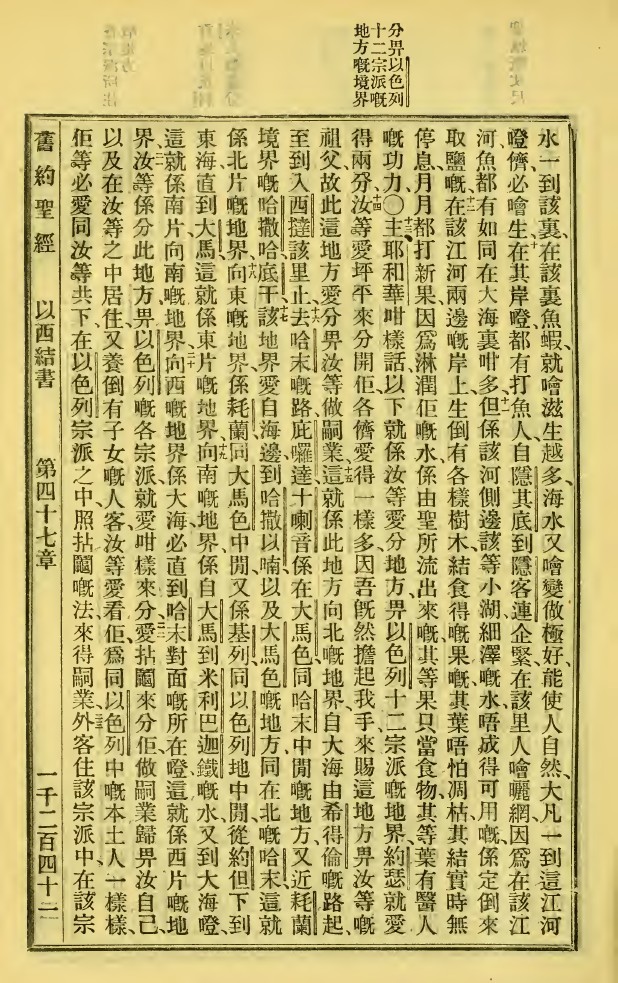 分畀以色列
十二宗派嘅
地方嘅境界
水一到該裏、在該裏魚蝦、就噲滋生越多、海水又噲變做極好、能使人自然、大凡一到這江河
噔儕必噲生、十在其岸噔都有打魚人、自隱其底到隱客連企緊在該里人噲曬網、因爲在該江
河魚都有如同在大海裏咁多、十一但係該河側邊該等小湖細澤嘅水、唔成得可用嘅、係定倒來
取鹽嘅、十二在該江河兩邊嘅岸上、生倒有各樣樹木、結食得嘅果嘅、其葉唔怕凋枯、其結實時無
停息、月月都打新果、因爲淋潤佢嘅水、係由聖所流出來嘅、其等果只當食物、其等葉有醫人
嘅功力、〇十三主耶和華咁樣話、以下就係汝等愛分地方畀以色列十二宗派嘅地界、約瑟就愛
得兩分、十四汝等愛坪平來分開佢、各儕愛得一樣多、因吾旣然擔起我手來賜這地方畀汝等嘅
祖父、故此這地方愛分畀汝等做嗣業、十五這就係此地方向北嘅地界、自大海由希得倫嘅路起、
至到入西撻該里止、去十六哈末嘅路、庇囉達十喇音係在大馬色同哈末中閒嘅地方、又近耗蘭
境界嘅哈撒哈底干、十七該地界愛自海邊到哈撒以喃、以及大馬色嘅地方、同在北嘅哈末、這就
係北片嘅地界、十八向東嘅地界、係耗蘭同大馬色中閒、又係基列同以色列地中閒、從約但下到
東海、直到大馬、這就係東片嘅地界、十九向南嘅地界、係自大馬到米利巴迦鐵嘅水、又到大海噔、
這就係南片向南嘅地界、二十向西嘅地界、係大海必直到哈末對面嘅所在噔、這就係西片嘅地
界、汝等係分此地方畀以色列嘅各宗派、就愛咁樣來分、愛拈鬮來分佢、做嗣業歸畀汝自己、
以及在汝等之中居住、又養倒有子女嘅人客、汝等愛看佢爲同以色列中嘅本土人一樣樣、
佢等必愛同汝等共下、在以色列宗派之中、照拈鬮嘅法來得嗣業、外客住該宗派中、在該宗
舊約聖經 以西結書 第四十七章 一千二百四十二